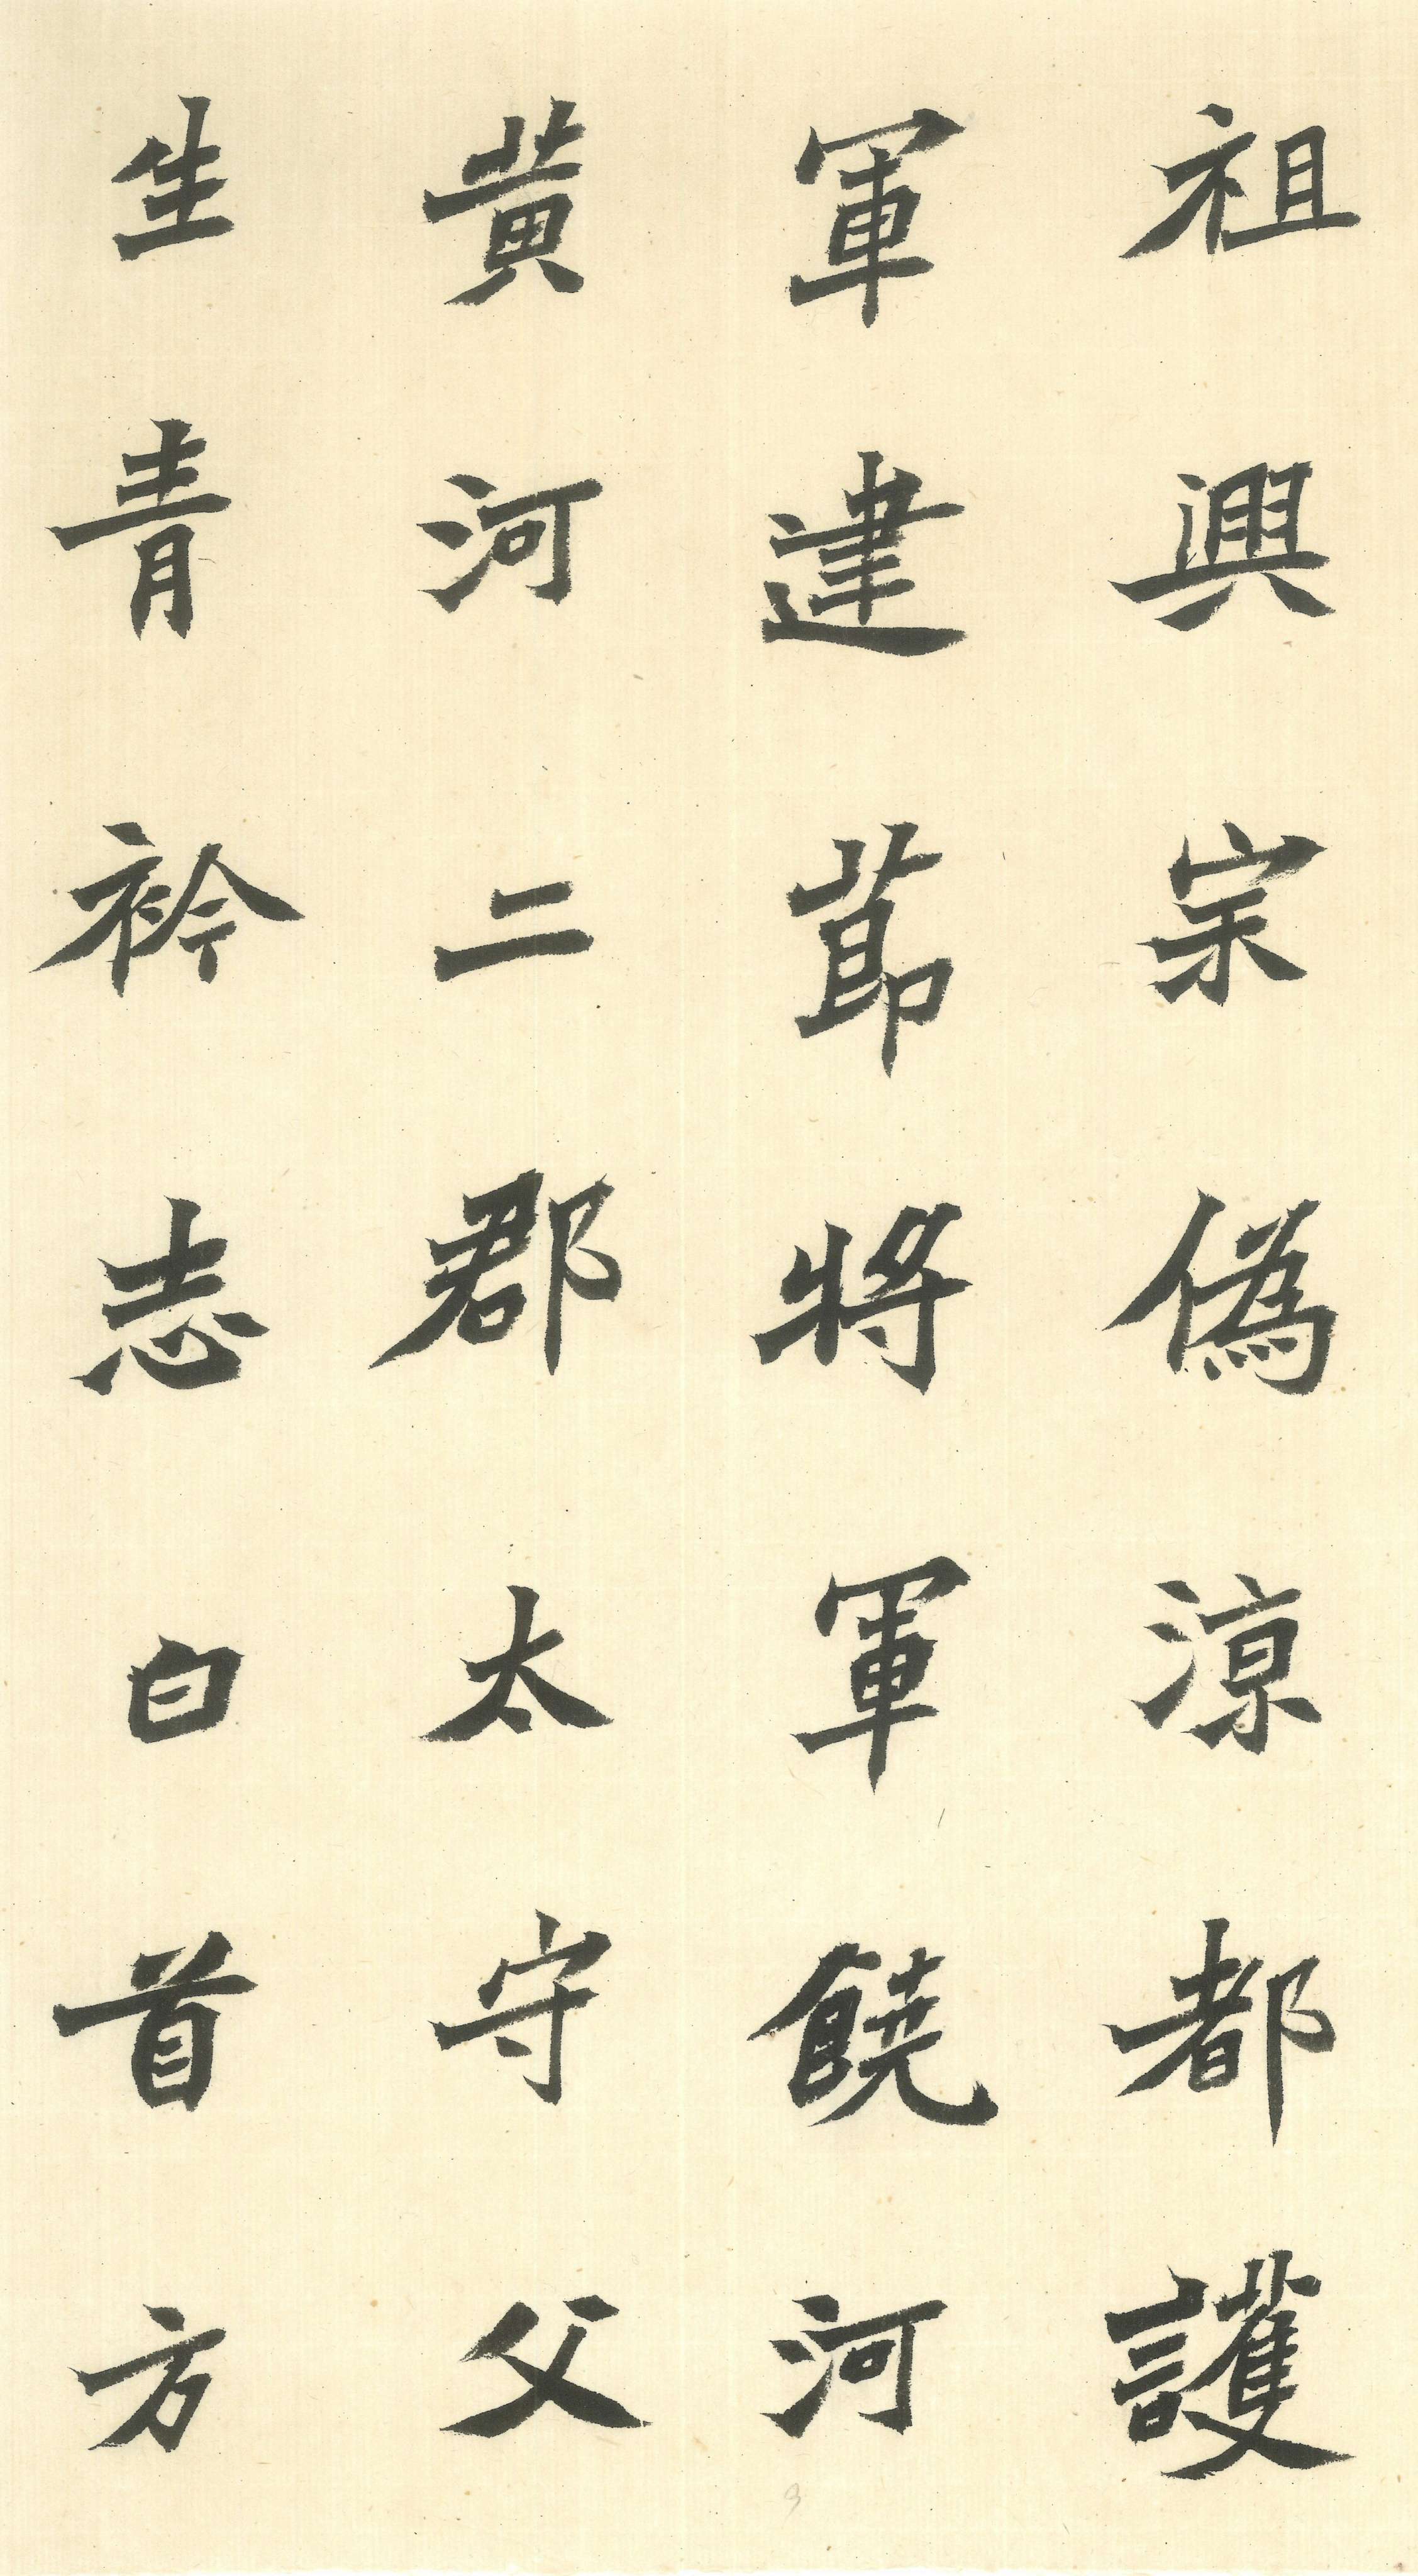 祖興宗偽涼都護
軍建節將軍饒河
黃河二郡太守父
生青衿志白首方